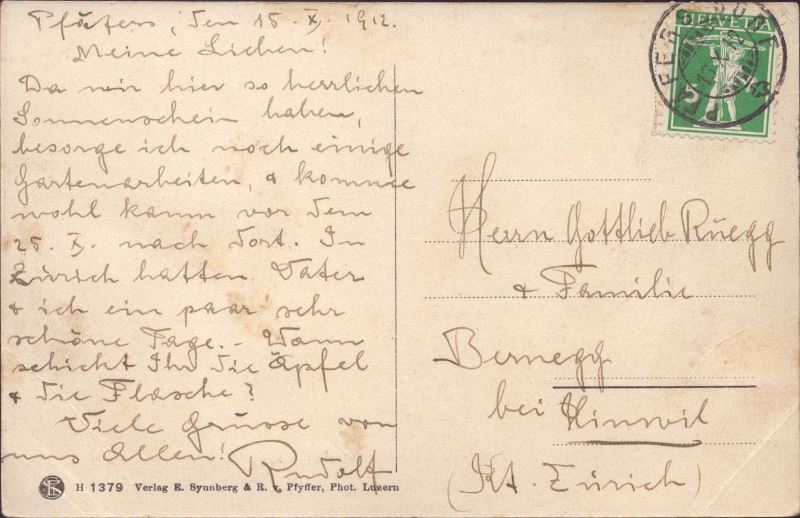 Pfäfers, den 15. X. 1912.
Meine Lieben!
Da wir hier so herrlichen
Sonnenschein haben,
besorge ich noch einige
Gartenarbeiten, & komme
wohl kaum vor dem
25. X. nach dort. In
Zürich hatten Vater
& ich ein paar sehr
schöne Tage. – Wann
schickt Ihr die Äpfel
& die Flasche?
Viele Grüsse von
uns Allen!
Rudolf
HELVETIA
5
Herrn Gottlieb Rüegg
& Familie
Bernegg
bei Hinwil
(Kt. Zürich)
H 1379 Verlag E. Synnberg & R. v. Pfyffer, Phot. Luzern